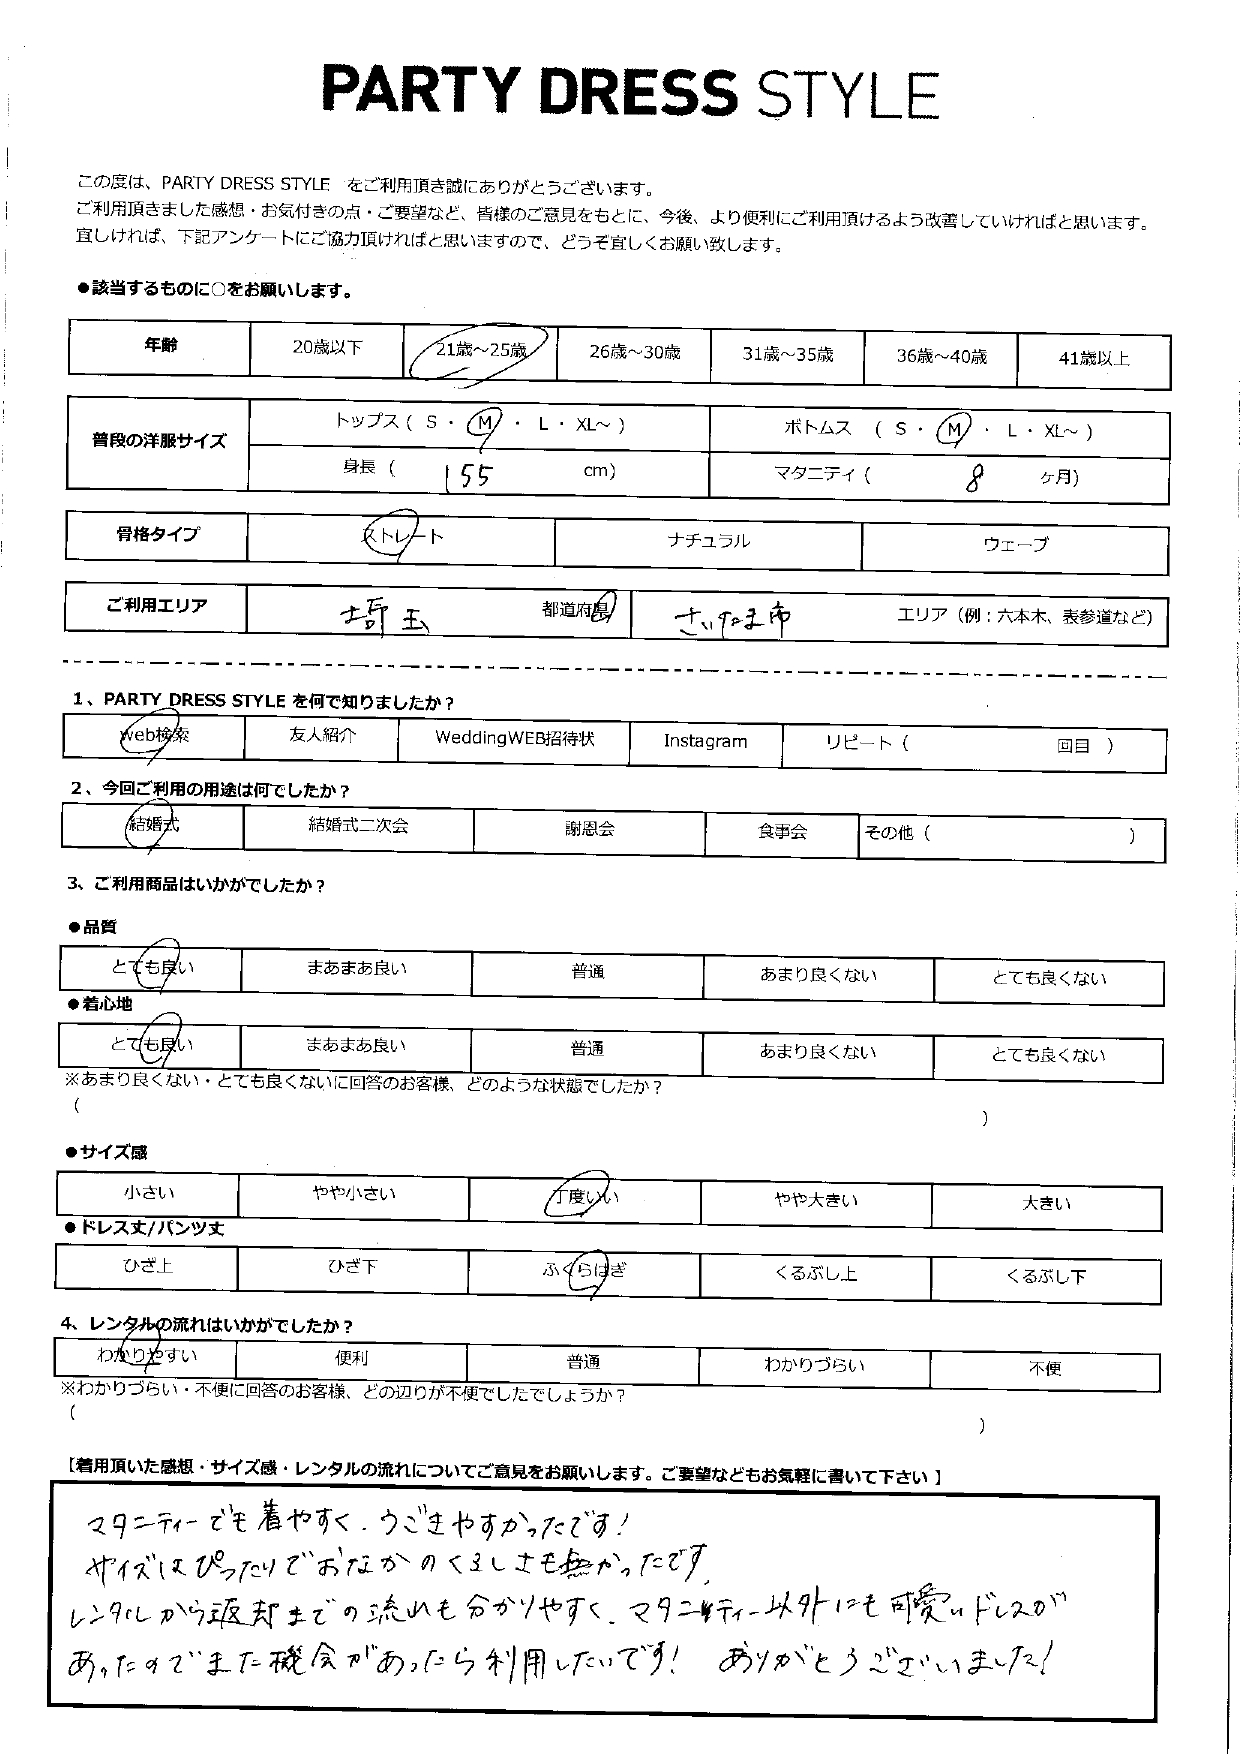 PARTY DRESS STYLE
この度は、PARTY DRESS STYLE をご利用頂き誠にありがとうございます。
ご利用頂きました感想・お気付きの点・ご要望など、皆様のご意見をもとに、今後、より便利にご利用頂けるよう改善していければと思います。
宜しければ、下記アンケートにご協力頂ければと思いますので、どうぞ宜しくお願い致します。
●該当するものに○をお願いします。
年齢 20歳以下 21歳～25歳 26歳～30歳 31歳～35歳 36歳～40歳 41歳以上
普段の洋服サイズ トップス ( S ・ M ・ L ・ XL～ ) ボトムス ( S ・ M ・ L ・ XL～ )
身長 ( 155 cm) マタニティ ( 8 ヶ月)
骨格タイプ ストレート ナチュラル ウェーブ
ご利用エリア 埼玉 都道府県 さいたま市 エリア（例：六本木、表参道など）
1、PARTY DRESS STYLE を何で知りましたか？
web検索 友人紹介 WeddingWEB招待状 Instagram リピート ( 回目 )
2、今回ご利用の用途は何でしたか？
結婚式 結婚式二次会 謝恩会 食事会 その他 ( )
3、ご利用商品はいかがでしたか？
●品質
とても良い まあまあ良い 普通 あまり良くない とても良くない
●着心地
とても良い まあまあ良い 普通 あまり良くない とても良くない
※あまり良くない・とても良くないに回答のお客様、どのような状態でしたか？
( )
●サイズ感
小さい やや小さい 丁度いい やや大きい 大きい
●ドレス丈/パンツ丈
ひざ上 ひざ下 ふくらはぎ くるぶし上 くるぶし下
4、レンタルの流れはいかがでしたか？
わかりやすい 便利 普通 わかりづらい 不便
※わかりづらい・不便に回答のお客様、どの辺りが不便でしたでしょうか？
( )
【着用頂いた感想・サイズ感・レンタルの流れについてご意見をお願いします。ご要望などもお気軽に書いて下さい 】
マタニティーでも着やすく、うごきやすかったです！
サイズはぴったりでおなかのくるしさも無かったです。
レンタルから返却までの流れも分かりやすく、マタニティー以外にも可愛いドレスが
あったのでまた機会があったら利用したいです！ ありがとうございました！